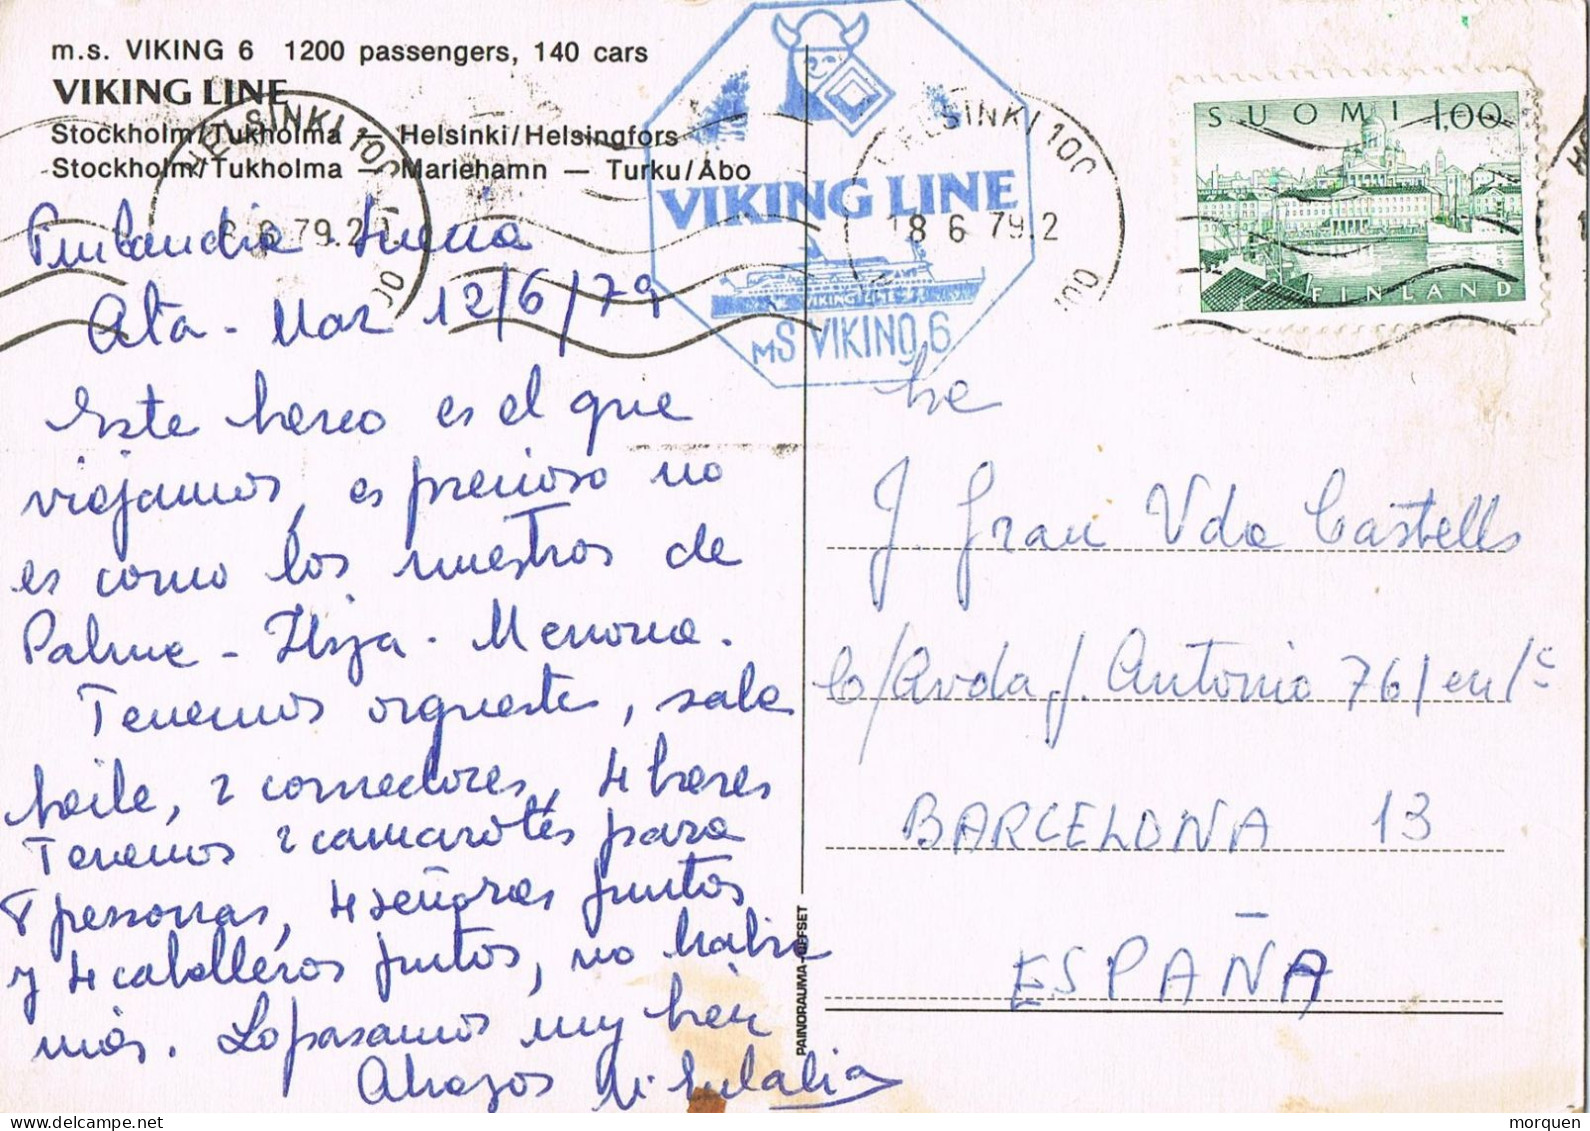 m.s. VIKING 6 1200 passengers, 140 cars
VIKING LINE
Stockholm/Tukholma — Helsinki/Helsingfors
Stockholm/Tukholma — Mariehamn — Turku/Åbo
HELSINKI 100
8.6.79.2
VIKING LINE
VIKING LINE
MS VIKING 6
HELSINKI 100
18 6 79.2
SUOMI 1,00
FINLAND
Finlandia - Suecia
Alta - Mar 12/6/79
Este barco es el que
viajamos, es precioso no
es como los nuestros de
Palma - Ibiza - Menorca.
Tenemos orquesta, sala
baile, 2 comedores, 4 bares
Tenemos 2 camarotes para
8 personas, 4 señoras juntos
y 4 caballeros juntos, no había
más. Lo pasamos muy bien
Abrazos Mª Eulalia
J. Grau Vda Castells
C/Avda J. Antonio 76/en/c
BARCELONA 13
ESPAÑA
PAINORAUMA-OFFSET
morquen